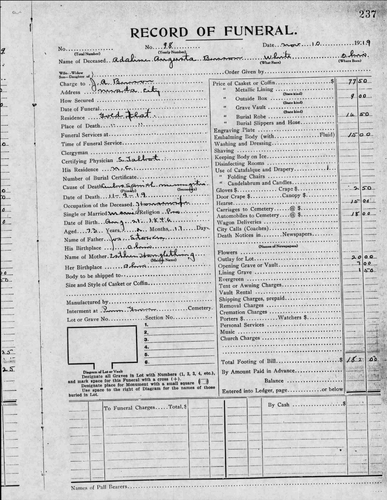 237
RECORD OF FUNERAL.
No. No. 98 Date Nov. 10 1919
(Total Number) (Yearly Number)
Name of Deceased Adaline Augusta Benson White Ohio
(What Race) (Where Born)
Wife Widow
Son Daughter of Order Given by
Charge to J. A. Benson
Address City
How Secured
Date of Funeral
Residence Gold Flat
Place of Death
Funeral Services at
Time of Funeral Service
Clergyman
Certifying Physician C. Talbot
His Residence N.C.
Number of Burial Certificate
Cause of Death
Date of Death 11-9-19
Occupation of the Deceased Housewife
Single or Married Religion
Date of Birth Aug. 1846
Aged 73 Years, 2 Months, 13 Days
Name of Father Jos.
His Birthplace Ohio
Name of Mother Esther
(Maiden Name)
Her Birthplace Ohio
Body to be shipped to
Size and Style of Casket or Coffin
Manufactured by
Interment at Cemetery
Lot or Grave No. Section No.
1.
2.
3.
4.
5.
6.
Diagram of Lot or Vault
Designate all Graves in Lot with Numbers (1, 2, 3, 4, etc.), and mark space for this Funeral with a cross (+).
Designate place for Monument with a small square
Use space to the right of Diagram for the names of those buried in Lot.
Price of Casket or Coffin 77 50
" Metallic Lining
(State kind)
" Outside Box 9 00
" Grave Vault
(State kind)
" Burial Robe
" Burial Slippers and Hose
Engraving Plate
Embalming Body (with Fluid) 15 00
Washing and Dressing
Shaving
Keeping Body on Ice
Disinfecting Rooms
Use of Catafalque and Drapery
" Folding Chairs
" Candelabrum and Candles
Gloves $ Crape $ 2 50
Door Crape $ Canopy $
Hearse 15 00
Carriages to Cemetery @ $
Automobiles to Cemetery @ $ 18 00
Wagon Deliveries
City Calls (Coaches)
Death Notices in Newspapers
(Names of Newspapers)
Flowers
Outlay for Lot 20 00
Opening Grave or Vault 7 00
Lining Grave 1 50
Evergreen
Tent or Awning Charges
Vault Rental
Shipping Charges, prepaid
Removal Charges
Cremation Charges
Porters $ Watchers $
Personal Services
Music
Church Charges
Total Footing of Bill
By Amount Paid in Advance
Balance
Entered into Ledger, page or below
To Funeral Charges Total, $ By Cash $
Names of Pall Bearers